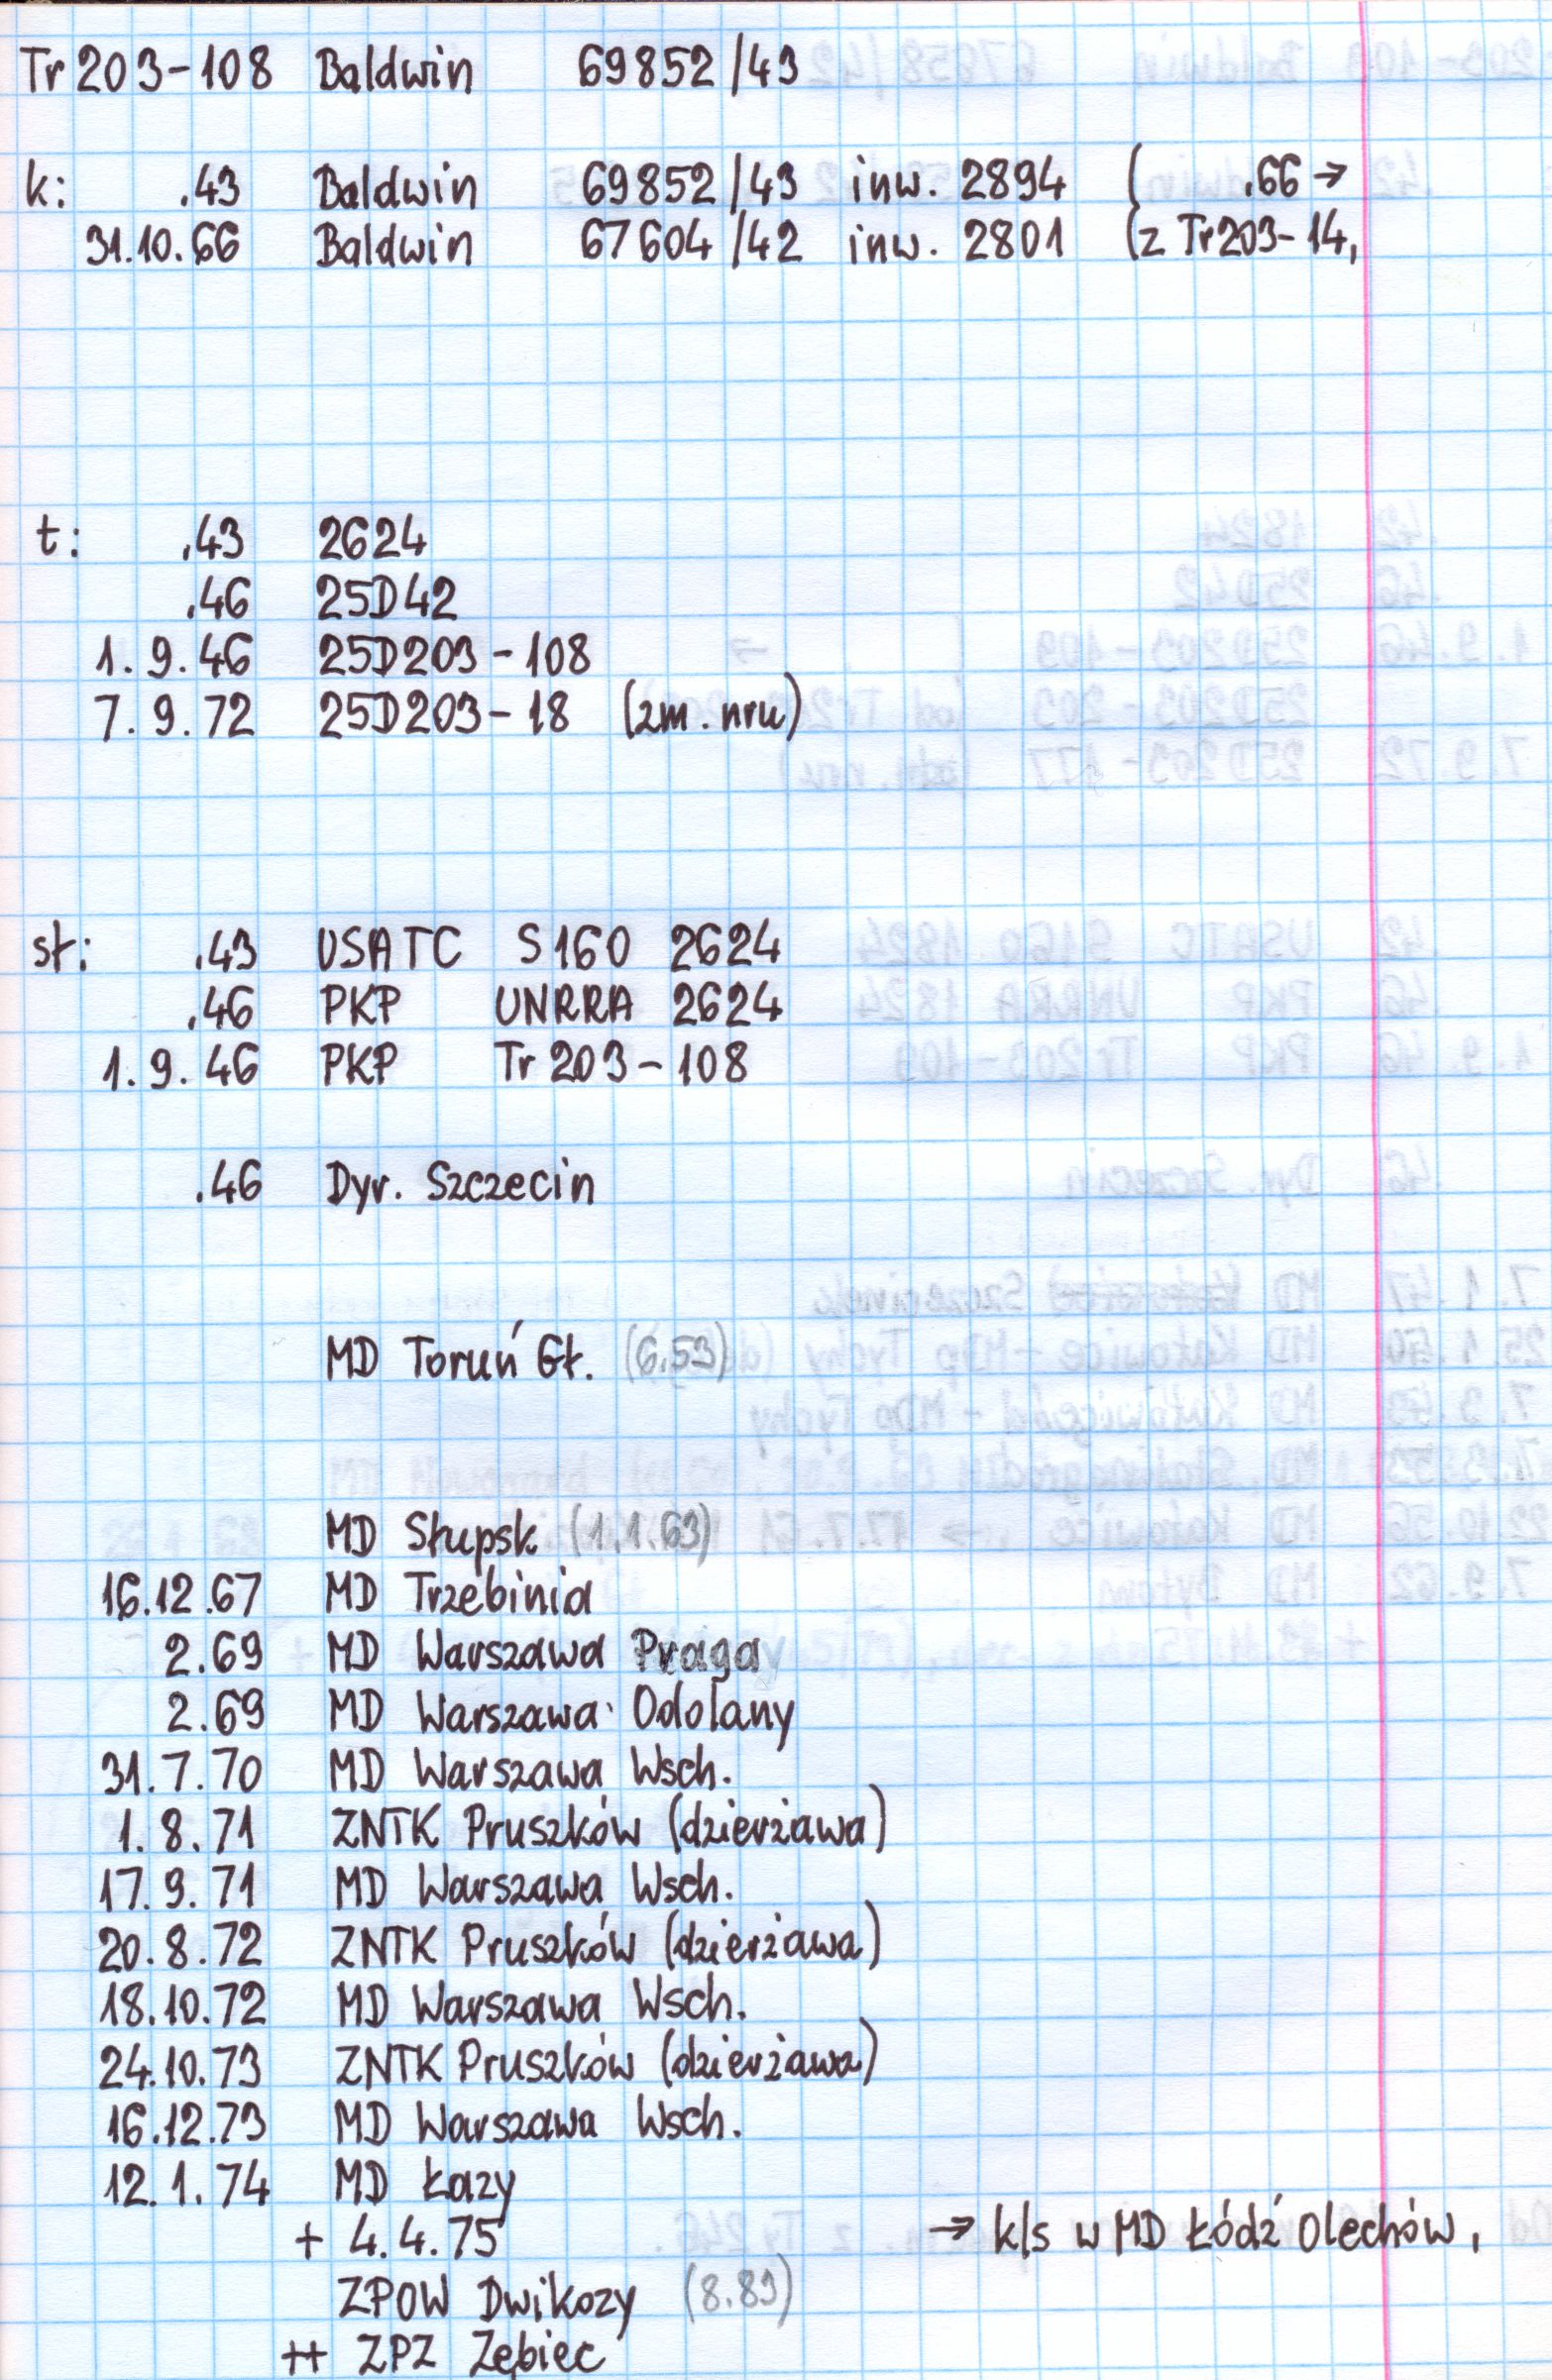 Tr 203-108 Baldwin 69852/43
k: .43 Baldwin 69852/43 inw. 2894 ( .66 →
31.10.66 Baldwin 67604/42 inw. 2801 (z Tr203-14,
t: .43 2624
.46 25D42
1.9.46 25D203-108
7.9.72 25D203-18 (zm. nru)
sł: .43 USATC S160 2624
.46 PKP UNRRA 2624
1.9.46 PKP Tr 203-108
.46 Dyr. Szczecin
MD Toruń Gł. (6.53)
MD Słupsk (1.1.63)
16.12.67 MD Trzebinia
2.69 MD Warszawa Praga
2.69 MD Warszawa Odolany
31.7.70 MD Warszawa Wsch.
1.8.71 ZNTK Pruszków (dzierżawa)
17.9.71 MD Warszawa Wsch.
20.8.72 ZNTK Pruszków (dzierżawa)
18.10.72 MD Warszawa Wsch.
24.10.73 ZNTK Pruszków (dzierżawa)
16.12.73 MD Warszawa Wsch.
12.1.74 MD Łazy
+ 4.4.75 → k/s w MD Łódź Olechów,
ZPOW Dwikozy (8.89)
++ ZPZ Zębiec